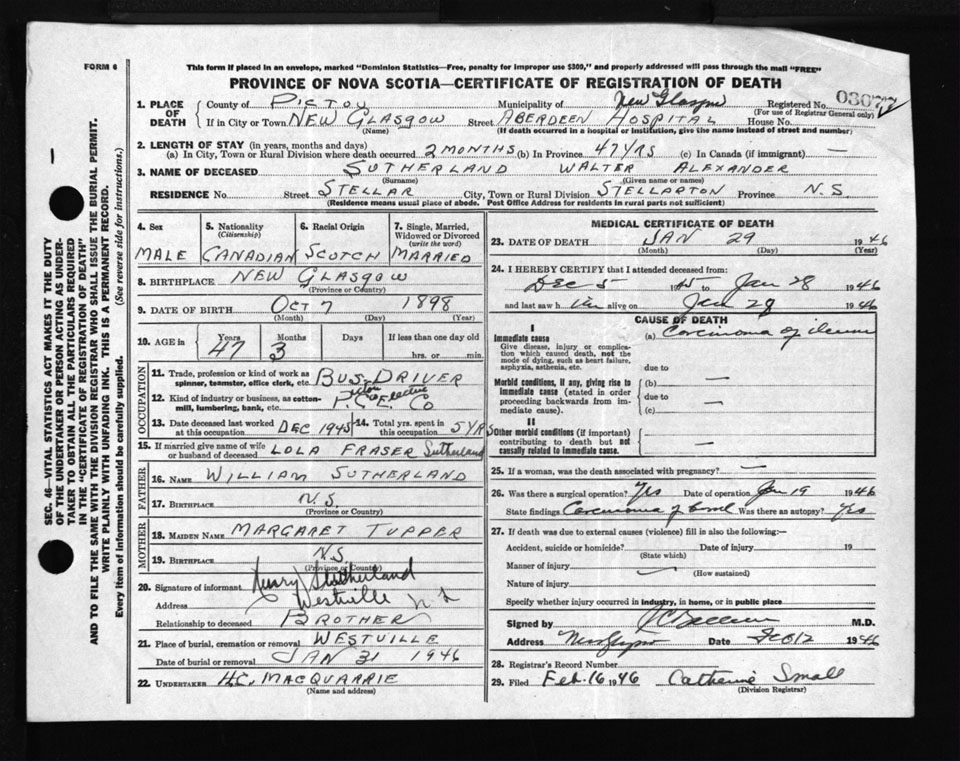 FORM 6
This form if placed in an envelope, marked "Dominion Statistics—Free, penalty for improper use $300," and properly addressed will pass through the mail "FREE"
PROVINCE OF NOVA SCOTIA—CERTIFICATE OF REGISTRATION OF DEATH
1. PLACE OF DEATH County of PICTOU Municipality of New Glasgow Registered No. 03077
(For use of Registrar General only)
If in City or Town NEW GLASGOW Street ABERDEEN HOSPITAL House No.
(Name) (If death occurred in a hospital or institution, give the name instead of street and number)
2. LENGTH OF STAY (in years, months and days)
(a) In City, Town or Rural Division where death occurred 2 MONTHS (b) In Province 47 YRS (c) In Canada (if immigrant) —
3. NAME OF DECEASED SUTHERLAND WALTER ALEXANDER
(Surname) (Given name or names)
RESIDENCE No. Street STELLAR City, Town or Rural Division STELLARTON Province N.S.
(Residence means usual place of abode. Post Office Address for residents in rural parts not sufficient)
4. Sex 5. Nationality (Citizenship) 6. Racial Origin 7. Single, Married, Widowed or Divorced (write the word)
MALE CANADIAN SCOTCH MARRIED
8. BIRTHPLACE NEW GLASGOW
(Province or Country)
9. DATE OF BIRTH OCT 7 1898
(Month) (Day) (Year)
10. AGE in Years Months Days If less than one day old
47 3 hrs. or min.
OCCUPATION
11. Trade, profession or kind of work as spinner, teamster, office clerk, etc. BUS-DRIVER
12. Kind of industry or business, as cotton-mill, lumbering, bank, etc. P.C. Electric Co
13. Date deceased last worked at this occupation DEC 1945 14. Total yrs. spent in this occupation 5 YR
15. If married give name of wife or husband of deceased LOLA FRASER Sutherland
FATHER
16. NAME WILLIAM SUTHERLAND
17. BIRTHPLACE N.S.
(Province or Country)
MOTHER
18. MAIDEN NAME MARGARET TUPPER
19. BIRTHPLACE N.S.
(Province or Country)
20. Signature of informant Henry Sutherland
Address Westville N S
Relationship to deceased BROTHER
21. Place of burial, cremation or removal WESTVILLE
Date of burial or removal JAN 31 1946
22. UNDERTAKER H.C. MACQUARRIE
(Name and address)
MEDICAL CERTIFICATE OF DEATH
23. DATE OF DEATH JAN 29 1946
(Month) (Day) (Year)
24. I HEREBY CERTIFY that I attended deceased from:
Dec 5 1945 Jan 28 1946
and last saw h im alive on Jan 28 1946
CAUSE OF DEATH
I
Immediate cause (a) Carcinoma of ileum
Give disease, injury or complication which caused death, not the mode of dying, such as heart failure, asphyxia, asthenia, etc.
due to
Morbid conditions, if any, giving rise to immediate cause (stated in order proceeding backwards from immediate cause). (b) —
due to
(c) —
II
Other morbid conditions (if important) contributing to death but not causally related to immediate cause. —
25. If a woman, was the death associated with pregnancy? —
26. Was there a surgical operation? Yes Date of operation Jan 19 1946
State findings Carcinoma of bowel Was there an autopsy? Yes
27. If death was due to external causes (violence) fill in also the following:—
Accident, suicide or homicide? Date of injury 19
(State which)
Manner of injury —
(How sustained)
Nature of injury
Specify whether injury occurred in industry, in home, or in public place
Signed by M.D.
Address New Glasgow Date Feb 12 1946
28. Registrar's Record Number
29. Filed Feb. 16 1946 Catherine Small
(Division Registrar)
SEC. 46—VITAL STATISTICS ACT MAKES IT THE DUTY
OF THE UNDERTAKER OR PERSON ACTING AS UNDER-
TAKER TO OBTAIN ALL THE PARTICULARS REQUIRED
IN THE "CERTIFICATE OF REGISTRATION OF DEATH"
AND TO FILE THE SAME WITH THE DIVISION REGISTRAR WHO SHALL ISSUE THE BURIAL PERMIT.
WRITE PLAINLY WITH UNFADING INK. THIS IS A PERMANENT RECORD.
Every item of information should be carefully supplied. (See reverse side for instructions.)